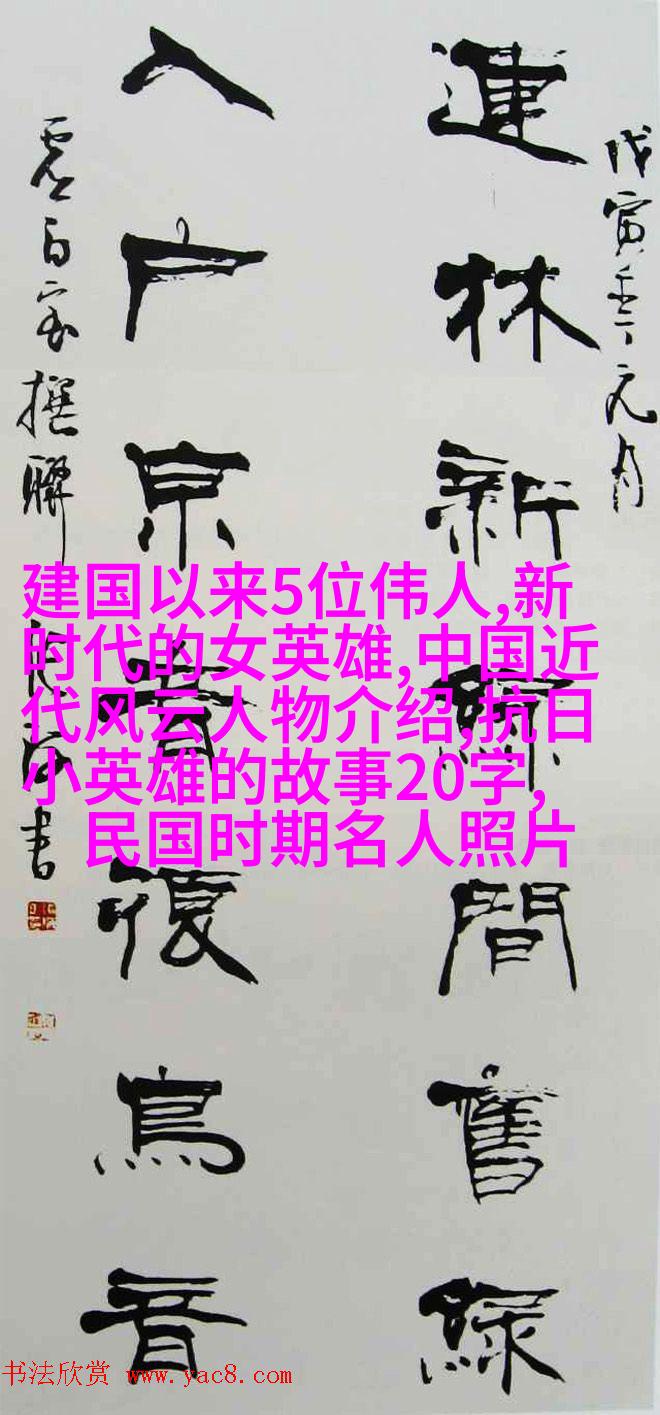 戊寅年元月
連林新綠間舊綠
入户京音鳥音
撰聯
书
建国以来5位伟人,新
时代的女英雄,中国近
代风云人物介绍,抗日
小英雄的故事20字,
民国时期名人照片
书法欣赏 www.yac8.com